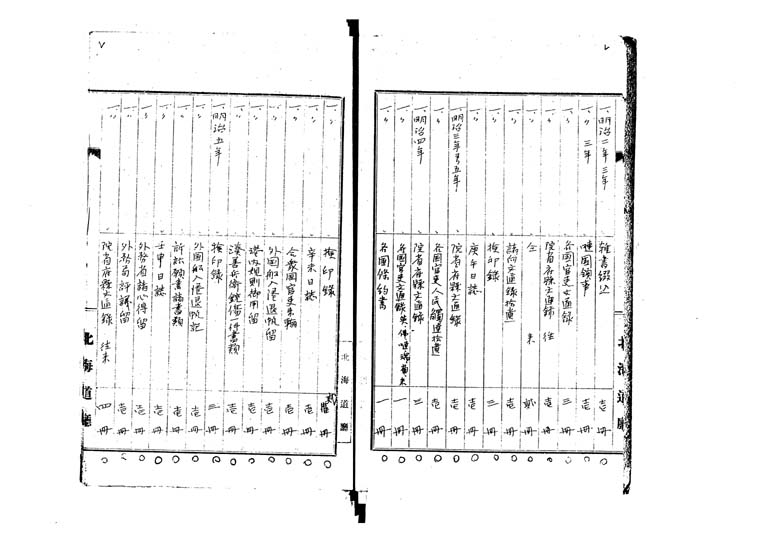 一、明治二年三年 雑書綴込 壱冊
一、〃 三年 嗹国條事 壱冊
一、〃 各国官吏文通録 三冊
一、〃 院省府縣文通録 往 壱冊
一、〃 仝 来 貳冊
一、〃 諸向文通録拾遺 壱冊
一、〃 検印録 三冊
一、〃 庚午日誌 壱冊
一、明治三年ヨリ五年 院省府縣文通録 壱冊
一、〃 各国官吏人民觸達拾遺 壱冊
一、明治四年 院省府縣文通録 二冊
一、〃 各国官吏文通録 英佛嗹瑞葡米 一冊
一、〃 各国條約書 一冊
北海道廳
一、〃 検印録 冊
一、〃 辛未日誌 壱冊
一、〃 合衆国官吏来翰 壱冊
一、〃 外国船入港退帆留 壱冊
一、〃 港内規則御用留 壱冊
一、〃 善兵衛 一件書類 壱冊
一、明治五年 検印録 三冊
一、〃 外国船入港退帆記 壱冊
一、〃 訴訟願書諸書類 壱冊
一、〃 壬申日誌 壱冊
一、〃 外務省諸心得留 壱冊
一、〃 外務局評議留 壱冊
一、〃 院省府縣文通録 往来 四冊
北海道廳
北海道廳